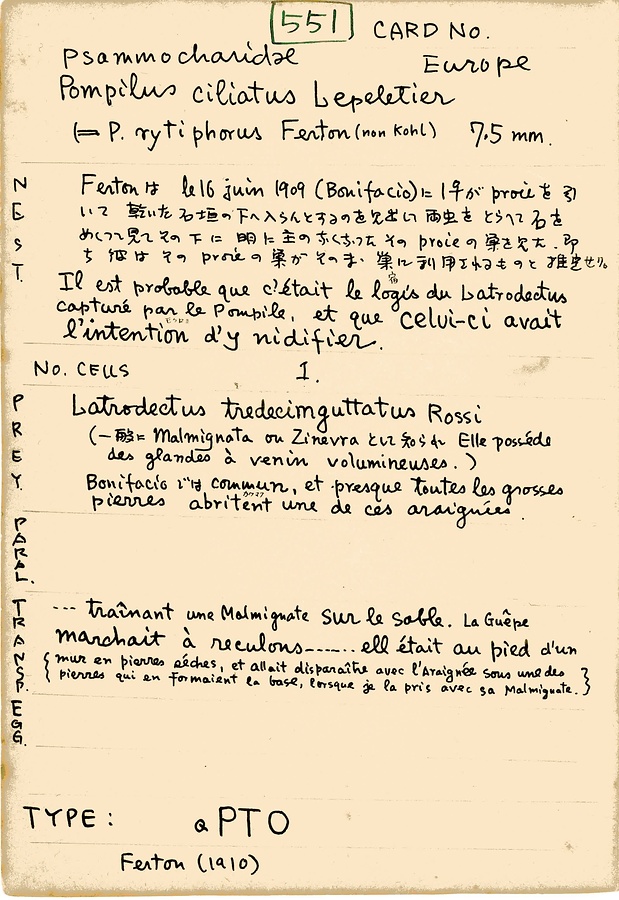 551 CARD NO.
Psammocharidae Europe
Pompilus ciliatus Lepeletier
(= P. rytiphorus Ferton (non Kohl) 7.5 mm.
NEST. Fertonは le 16 juin 1909 (Bonifacio)に 1♀が proieを引
いて 乾いた石垣の下へ入らんとするのを見出し 両虫をとらへて石を
めくって見てその下に 明に主の なくなった その proieの巣を見た. 即
ち 彼は その proieの巣が そのまゝ 巣に利用されるものと推定せり。
Il est probable que c'était le logis du Latrodectus
capturé par le Pompile, et que celui-ci avait
l'intention d'y nidifier.
No. CELLS 1.
PREY. Latrodectus tredecimguttatus Rossi
(一般に Malmignata ou Zinevra として知られ Elle possède
des glandes à venin volumineuses.)
Bonifacio では commun, et presque toutes les grosses
pierres abritent une de ces araignées.
PARAL.
TRANSP. --- traînant une Malmignate sur le sable. La Guêpe
marchait à reculons------ ell était au pied d'un
{mur en pierres séches, et allait disparaître avec l'Araignée sous une des
pierres qui en formaient la base, lorsque je la pris avec sa Malmignate.}
EGG.
TYPE: a PTO
Ferton (1910)